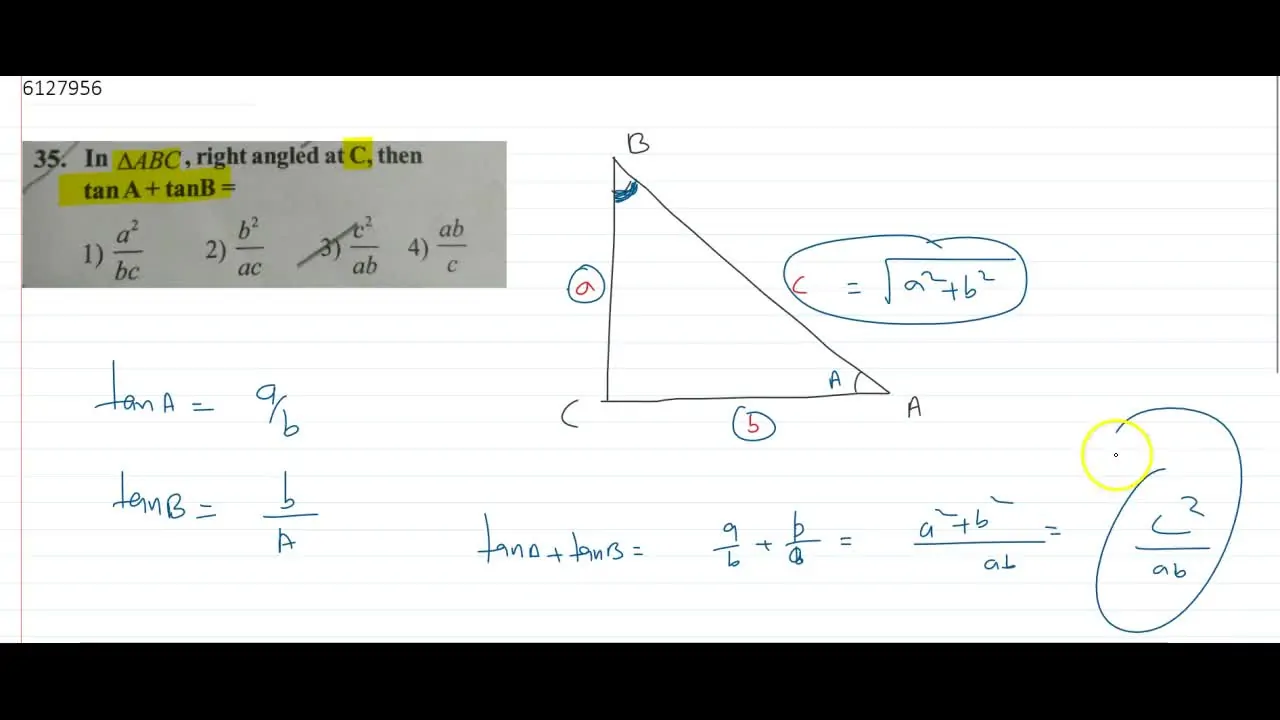 6127956
35. In ΔABC, right angled at C, then
tan A + tanB =
1) a²/bc 2) b²/ac 3) c²/ab 4) ab/c
B
a
c = √a²+b²
A
C
b
A
tanA = a/b
tanB = b/A
tanA + tanB = a/b + b/a = a²+b²/ab = c²/ab